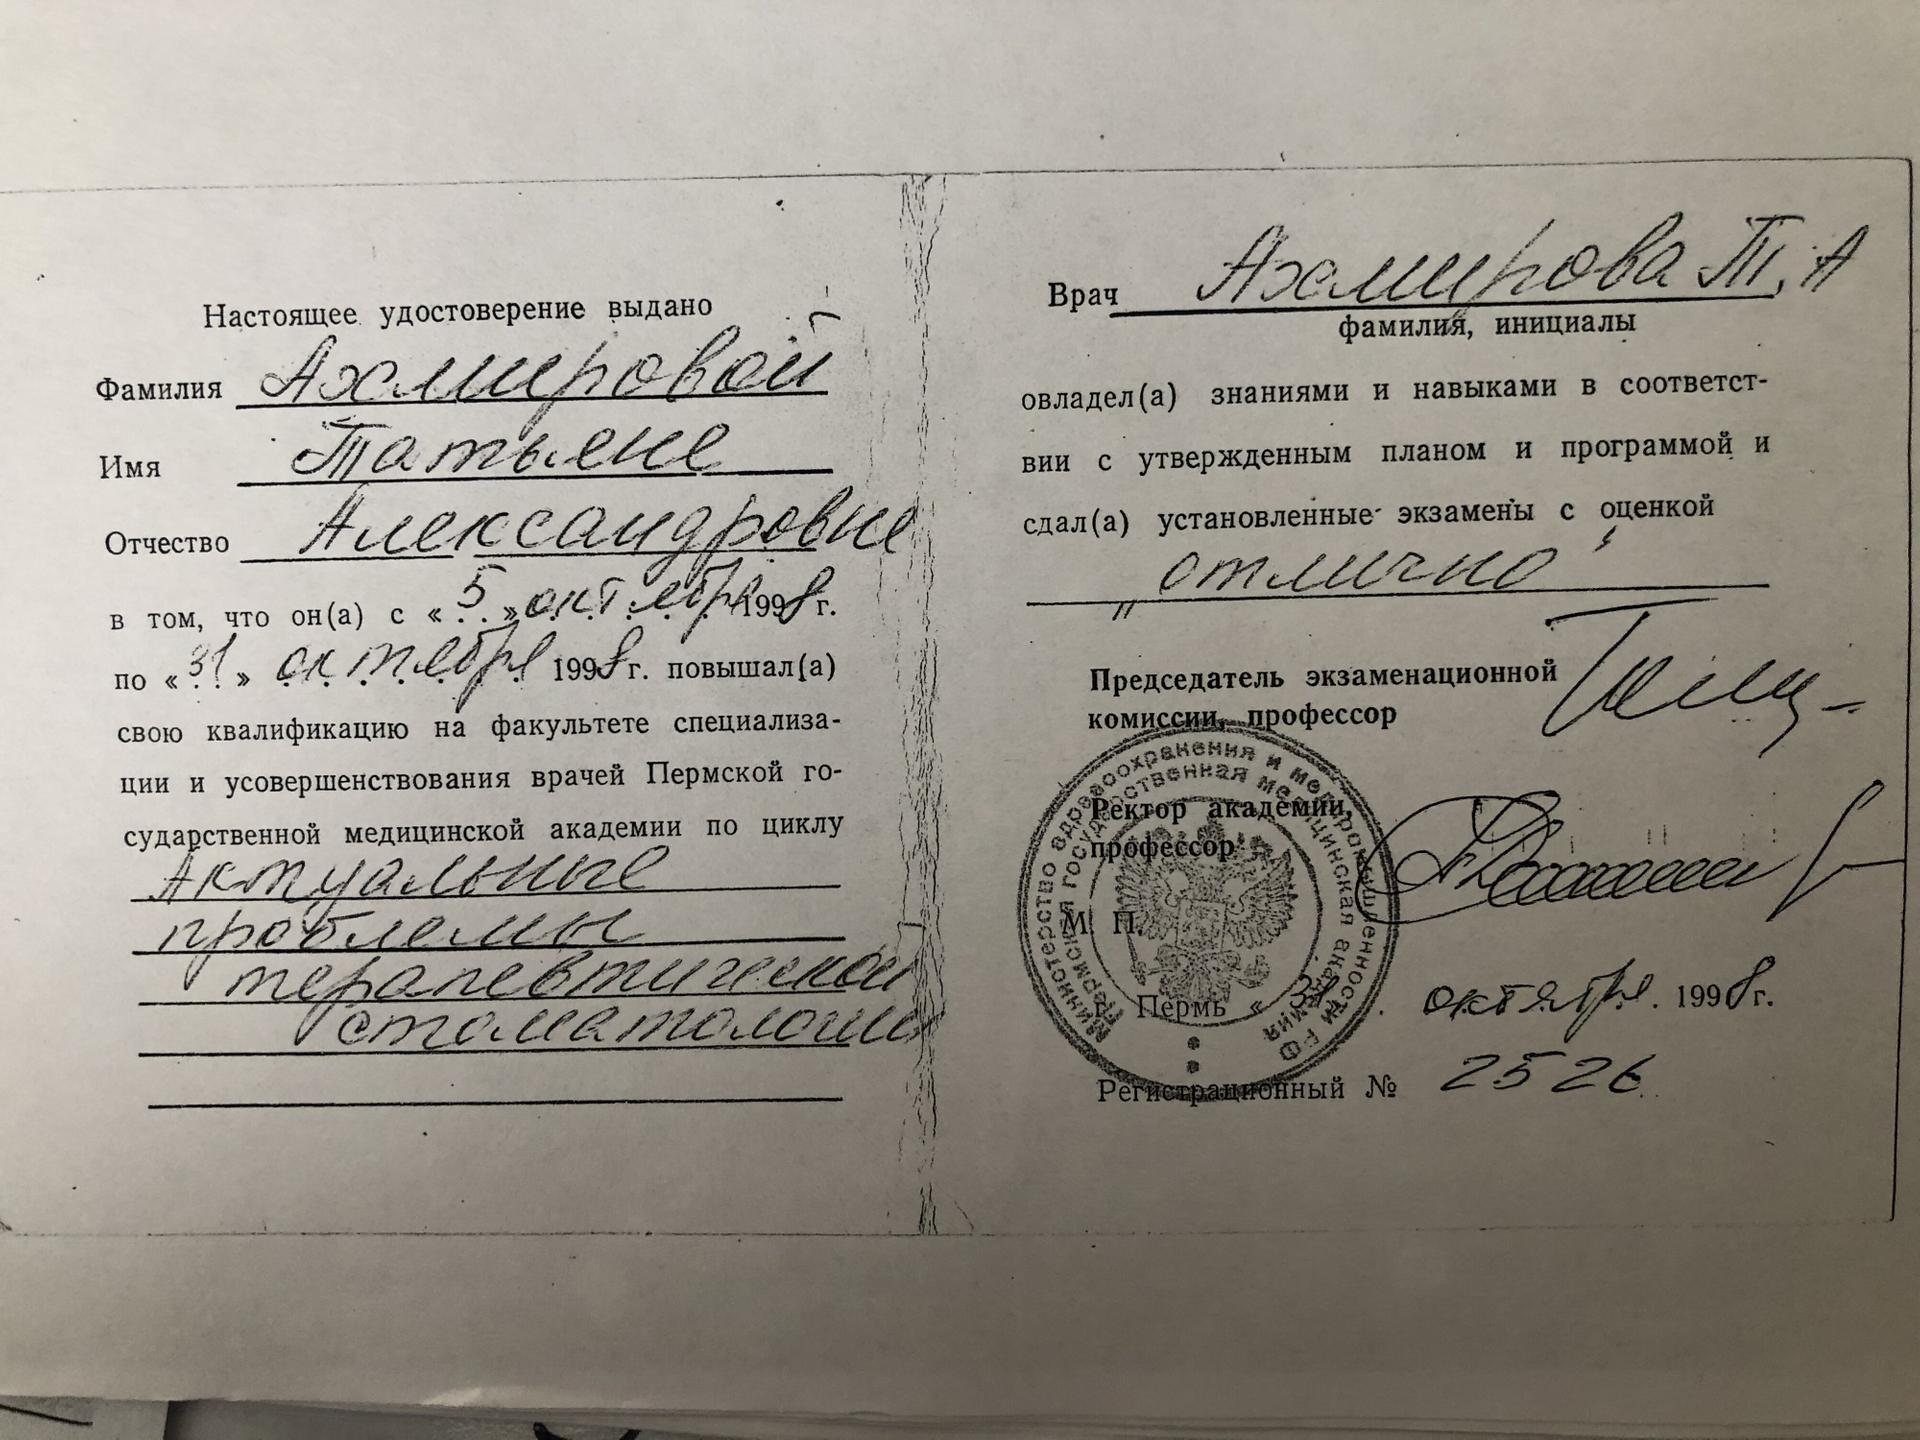 Настоящее удостоверение выдано
Фамилия Ахмировой
Имя Татьяне
Отчество Александровне
в том, что он(а) с «5» октября 1998 г.
по «31» октября 1998 г. повышал(а)
свою квалификацию на факультете специализа-
ции и усовершенствования врачей Пермской го-
сударственной медицинской академии по циклу
Актуальные
проблемы
терапевтической
стоматологии
Врач Ахмирова Т. А
фамилия, инициалы
овладел(а) знаниями и навыками в соответст-
вии с утвержденным планом и программой и
сдал(а) установленные экзамены с оценкой
„отлично"
Председатель экзаменационной
комиссии, профессор
Ректор академии,
профессор
М. П.
г. Пермь «31» октября 1998 г.
Регистрационный № 2526
Министерство здравоохранения и медпромышленности РФ
Пермская государственная медицинская академия